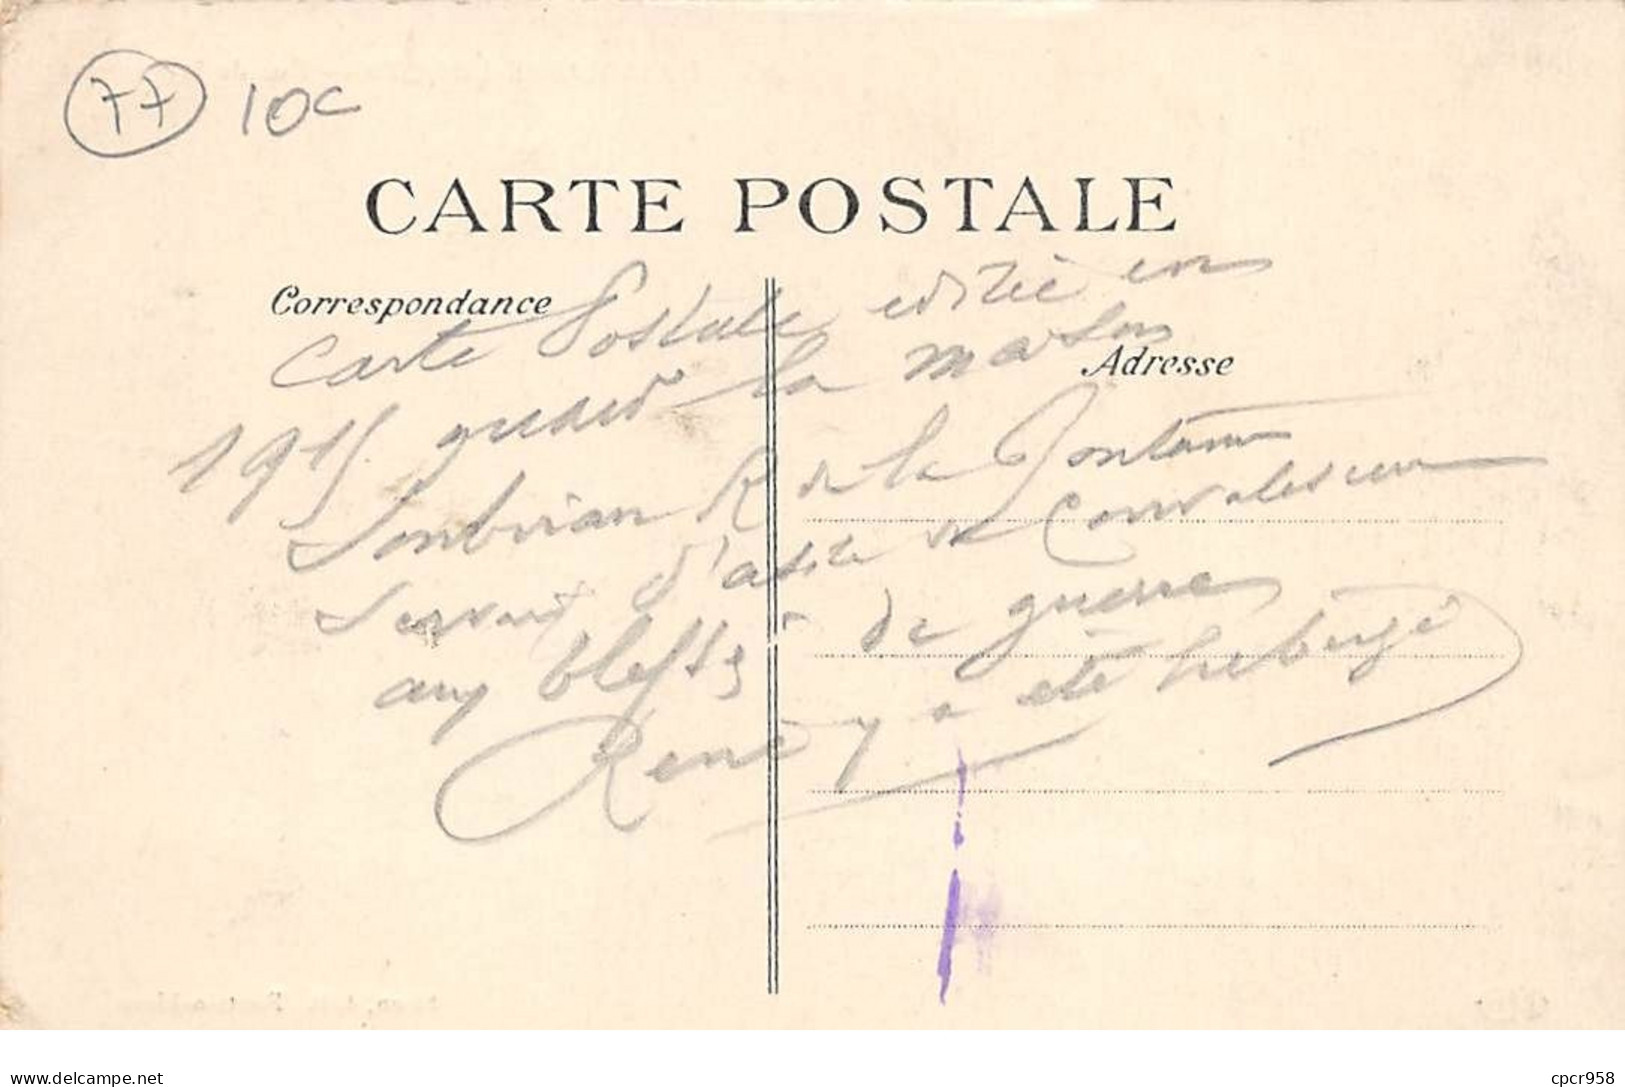 77 10c
CARTE POSTALE
Correspondance
Adresse
Carte Postale editée en
1915 quand la maison
R de la Fontaine
servait d'asile de Convalescence
aux blessés de guerre
René y a été hébergé
delcampe.net
cpcr958